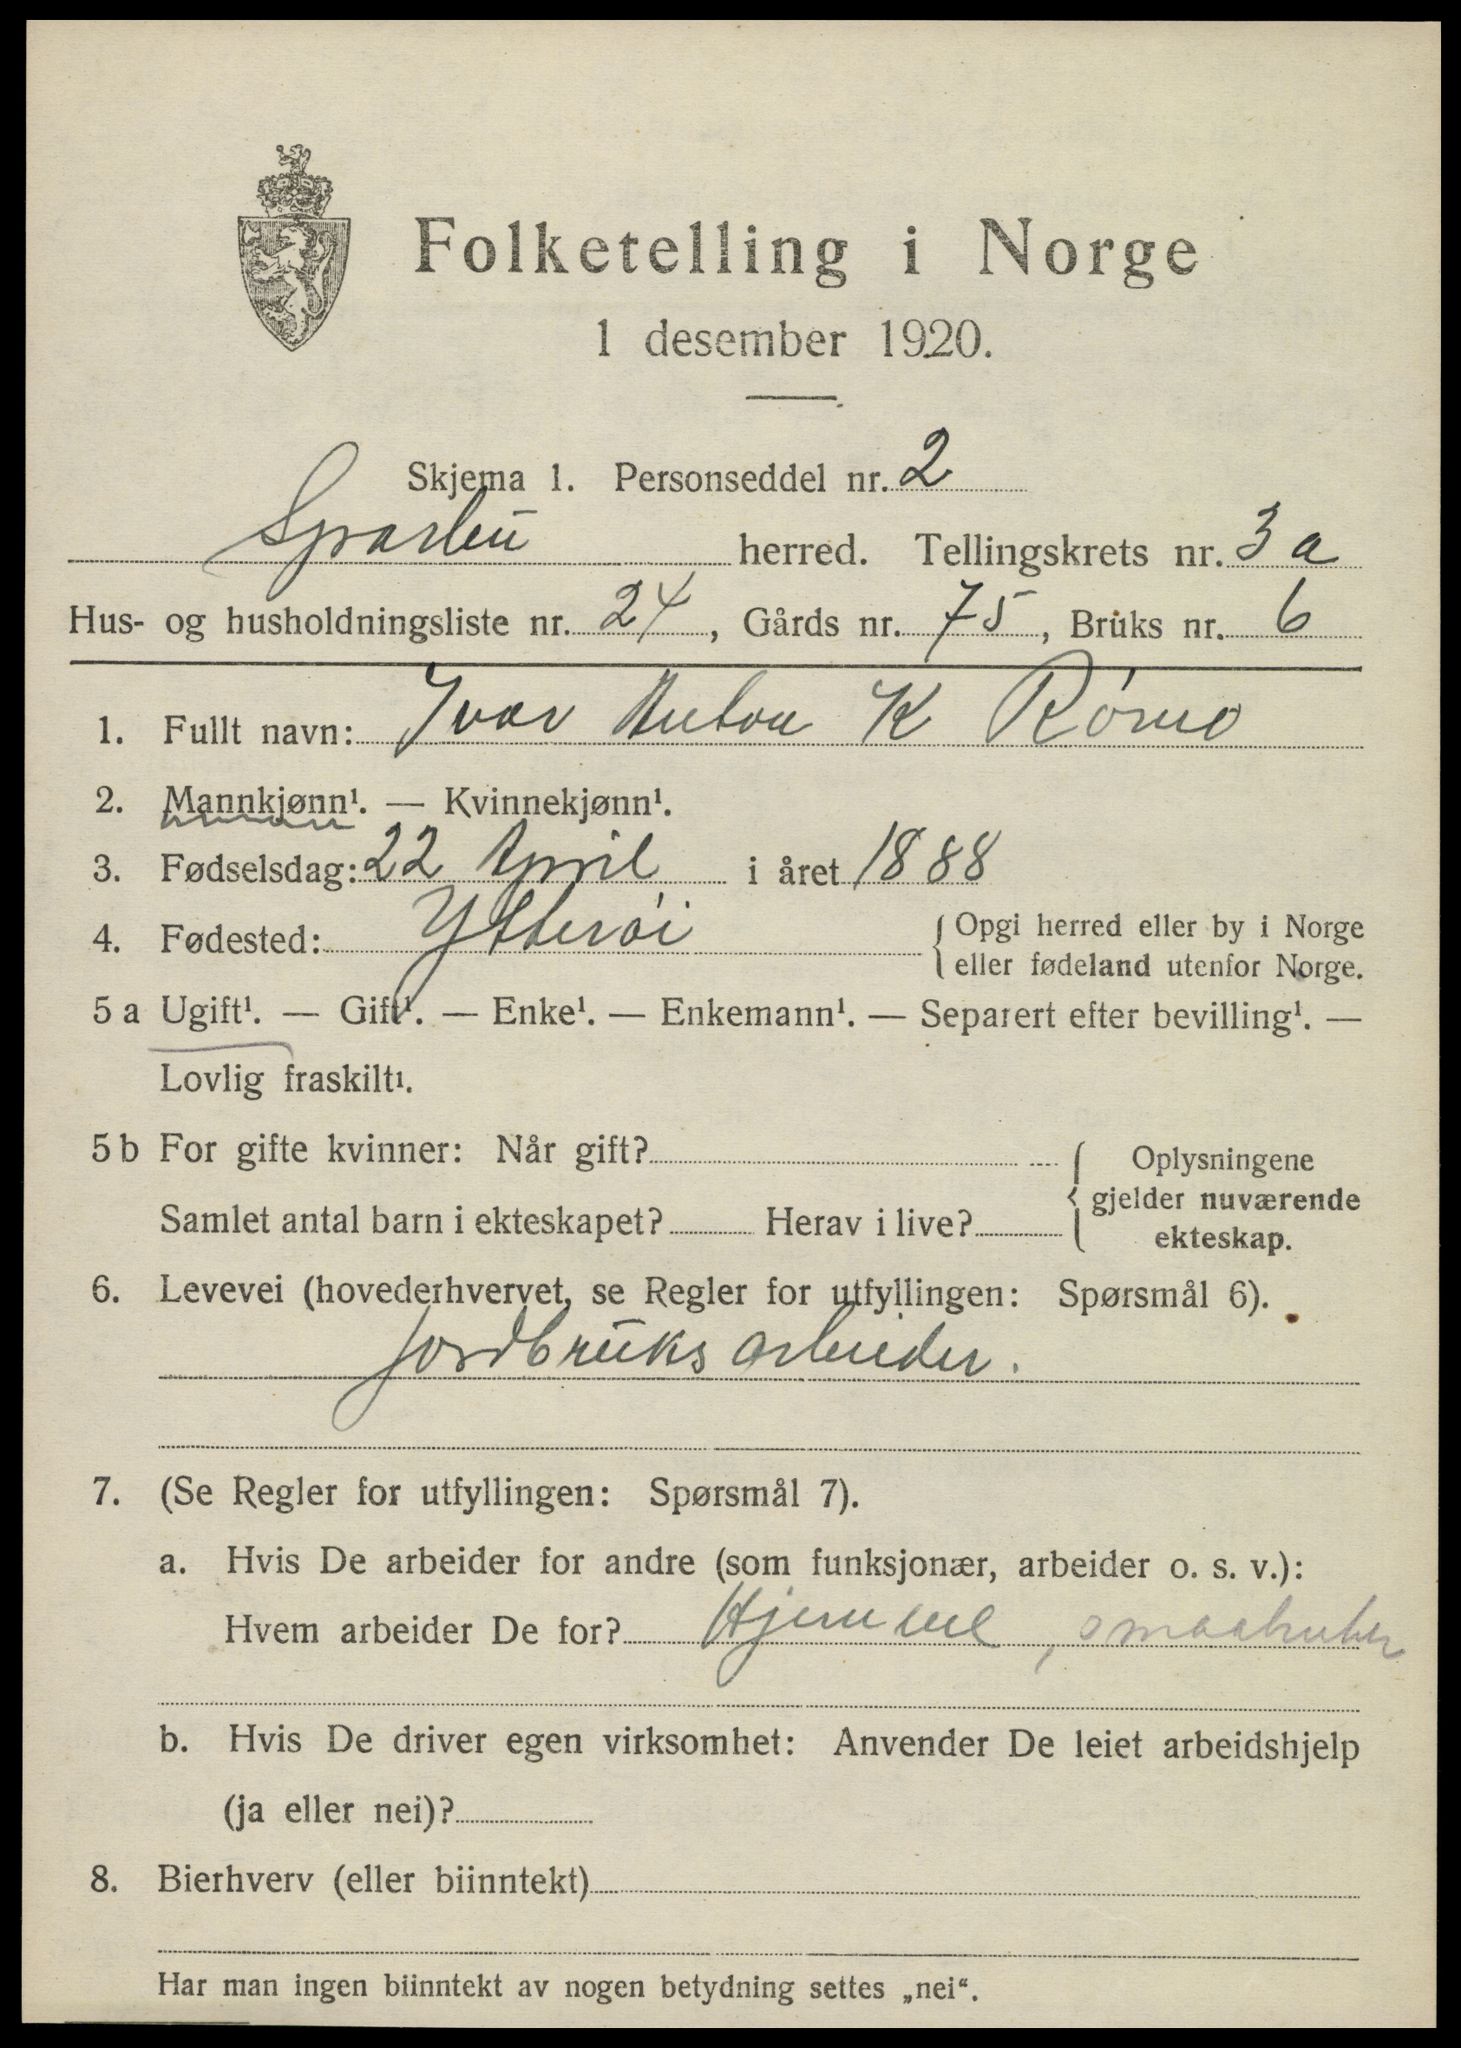 Folketelling i Norge
1 desember 1920.
Skjema 1. Personseddel nr. 2
Sparbu herred. Tellingskrets nr. 3 a
Hus- og husholdningsliste nr. 24, Gårds nr. 75, Bruks nr. 6
1. Fullt navn: Ivar Anton K Rømo
2. Mannkjønn¹. — Kvinnekjønn¹.
3. Fødselsdag: 22 April i året 1888
4. Fødested: Ytterøi { Opgi herred eller by i Norge
eller fødeland utenfor Norge.
5 a Ugift¹. — Gift¹. — Enke¹. — Enkemann¹. — Separert efter bevilling¹. —
Lovlig fraskilt¹.
5 b For gifte kvinner: Når gift? { Oplysningene
gjelder nuværende
Samlet antal barn i ekteskapet? Herav i live?
ekteskap.
6. Levevei (hovederhvervet, se Regler for utfyllingen: Spørsmål 6).
Jordbruksarbeider.
7. (Se Regler for utfyllingen: Spørsmål 7).
a. Hvis De arbeider for andre (som funksjonær, arbeider o. s. v.):
Hvem arbeider De for? Hjemme, smaabruker
b. Hvis De driver egen virksomhet: Anvender De leiet arbeidshjelp
(ja eller nei)?
8. Bierhverv (eller biinntekt)
Har man ingen biinntekt av nogen betydning settes „nei“.